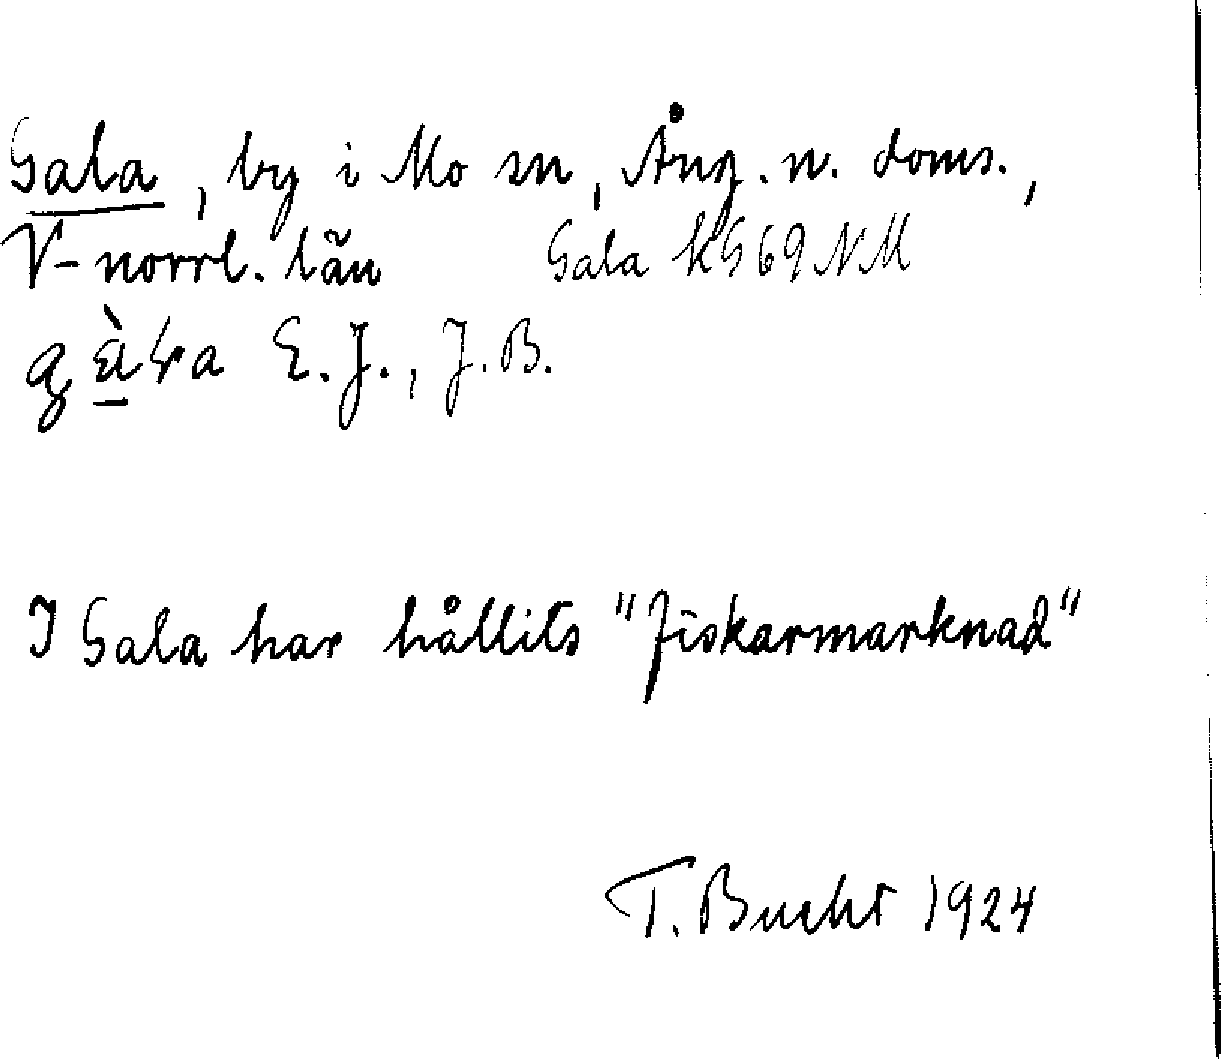 Gala, by i Mo sn, Ång. n. doms.,
V-norrl. län Gala KG 69 NM
E. J., J. B.
I Gala har hållits "Fiskarmarknad"
T. Bucht 1924